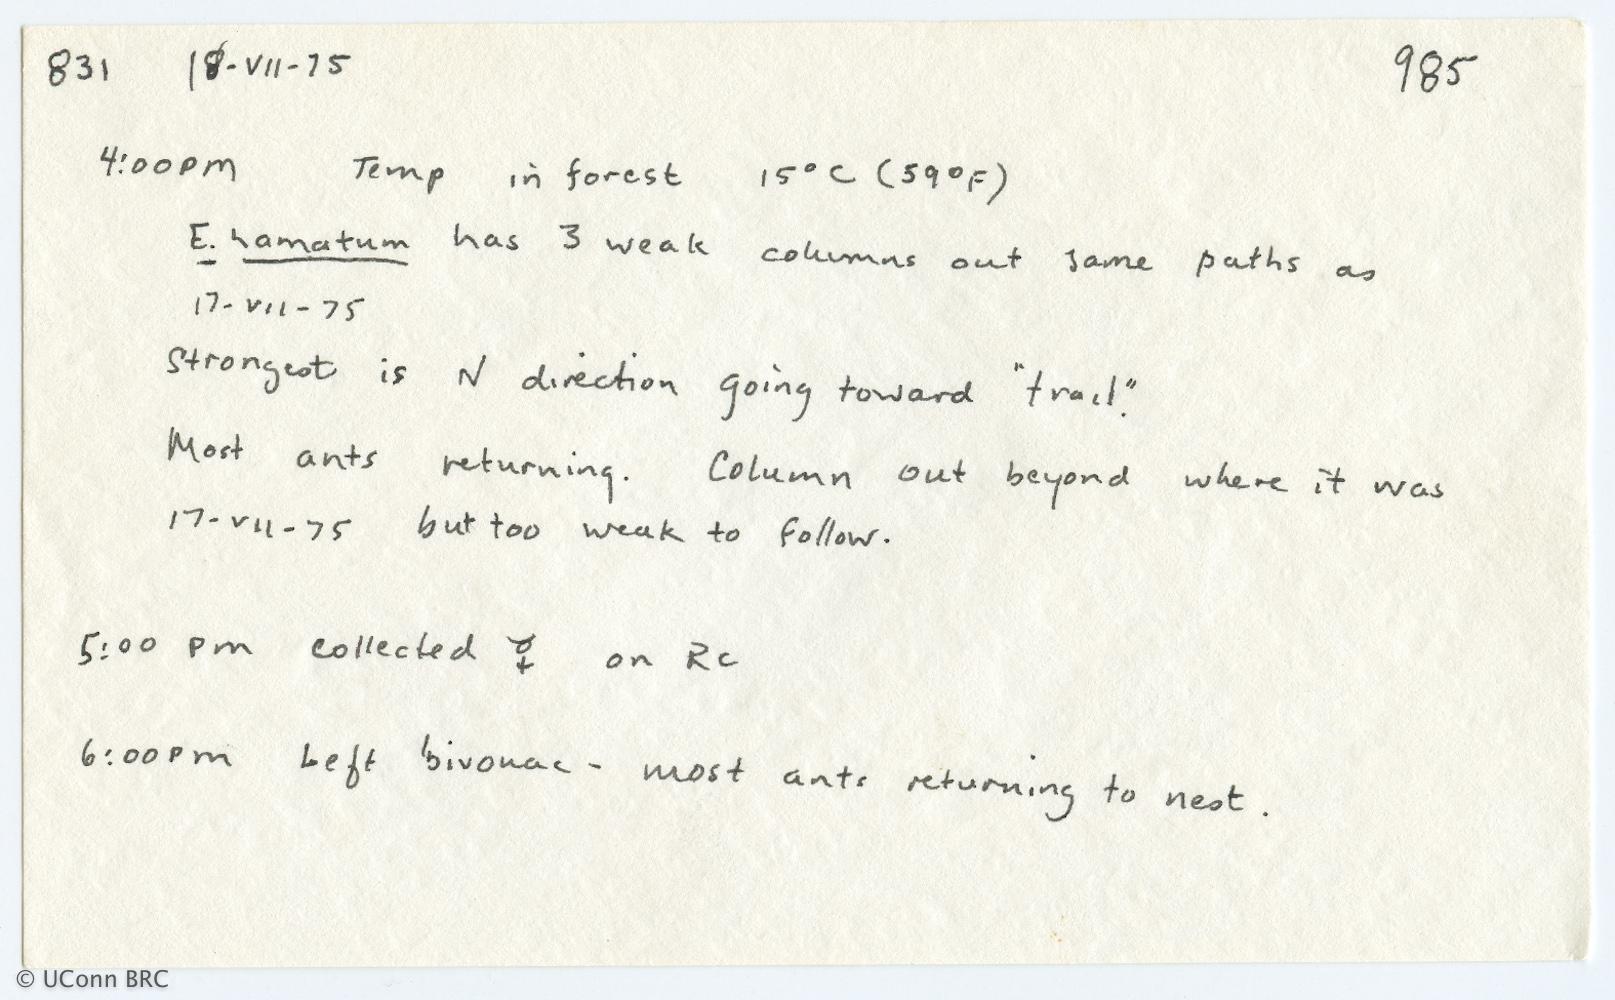 831 18-VII-75 985
4:00pm Temp in forest 15°C (59°F)
E. hamatum has 3 weak columns out same paths as
17-VII-75
Strongest is N direction going toward "trail".
Most ants returning. Column out beyond where it was
17-VII-75 but too weak to follow.
5:00 pm collected ☿ on Rc
6:00pm Left bivouac - most ants returning to nest.
© UConn BRC